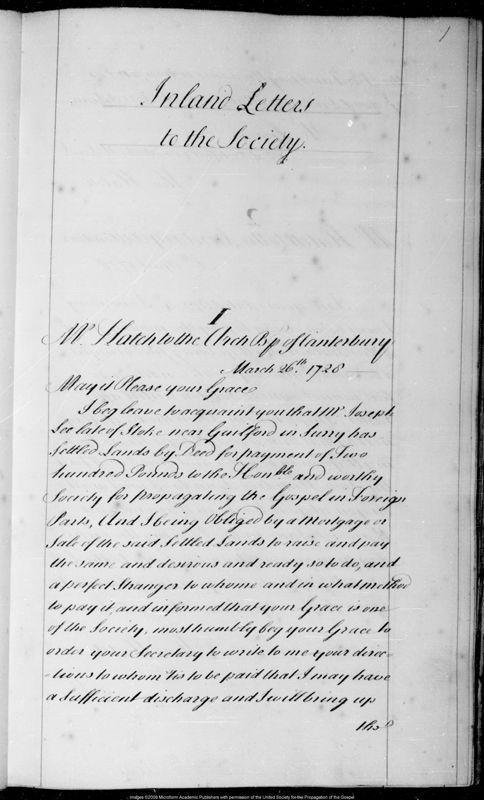 1
Inland Letters
to the Society.
I
Mr Hatch to the Arch Bp of Canterbury
March 26th. 1728
May it Please your Grace
I beg leave to acquaint you that Mr Joseph
Lee late of Stoke near Guilford in Surry has
Settled Lands by Deed for payment of Two
hundred Pounds to the Honble and worthy
Society for propagating the Gospel in Foreign
Parts, And I being Obliged by a Mortgage or
Sale of the said Settled Lands to raise and pay
the same and desirous and ready so to do, and
a perfect Stranger to whome and in what method
to pay it, and informed that your Grace is one
of the Society, most humbly beg your Grace to
order your Secretary to write to me your direc-
-tions to whom 'tis to be paid that I may have
a Sufficient discharge and I will bring up
the
Images ©2006 Microform Academic Publishers with permission of the United Society for the Propagation of the Gospel